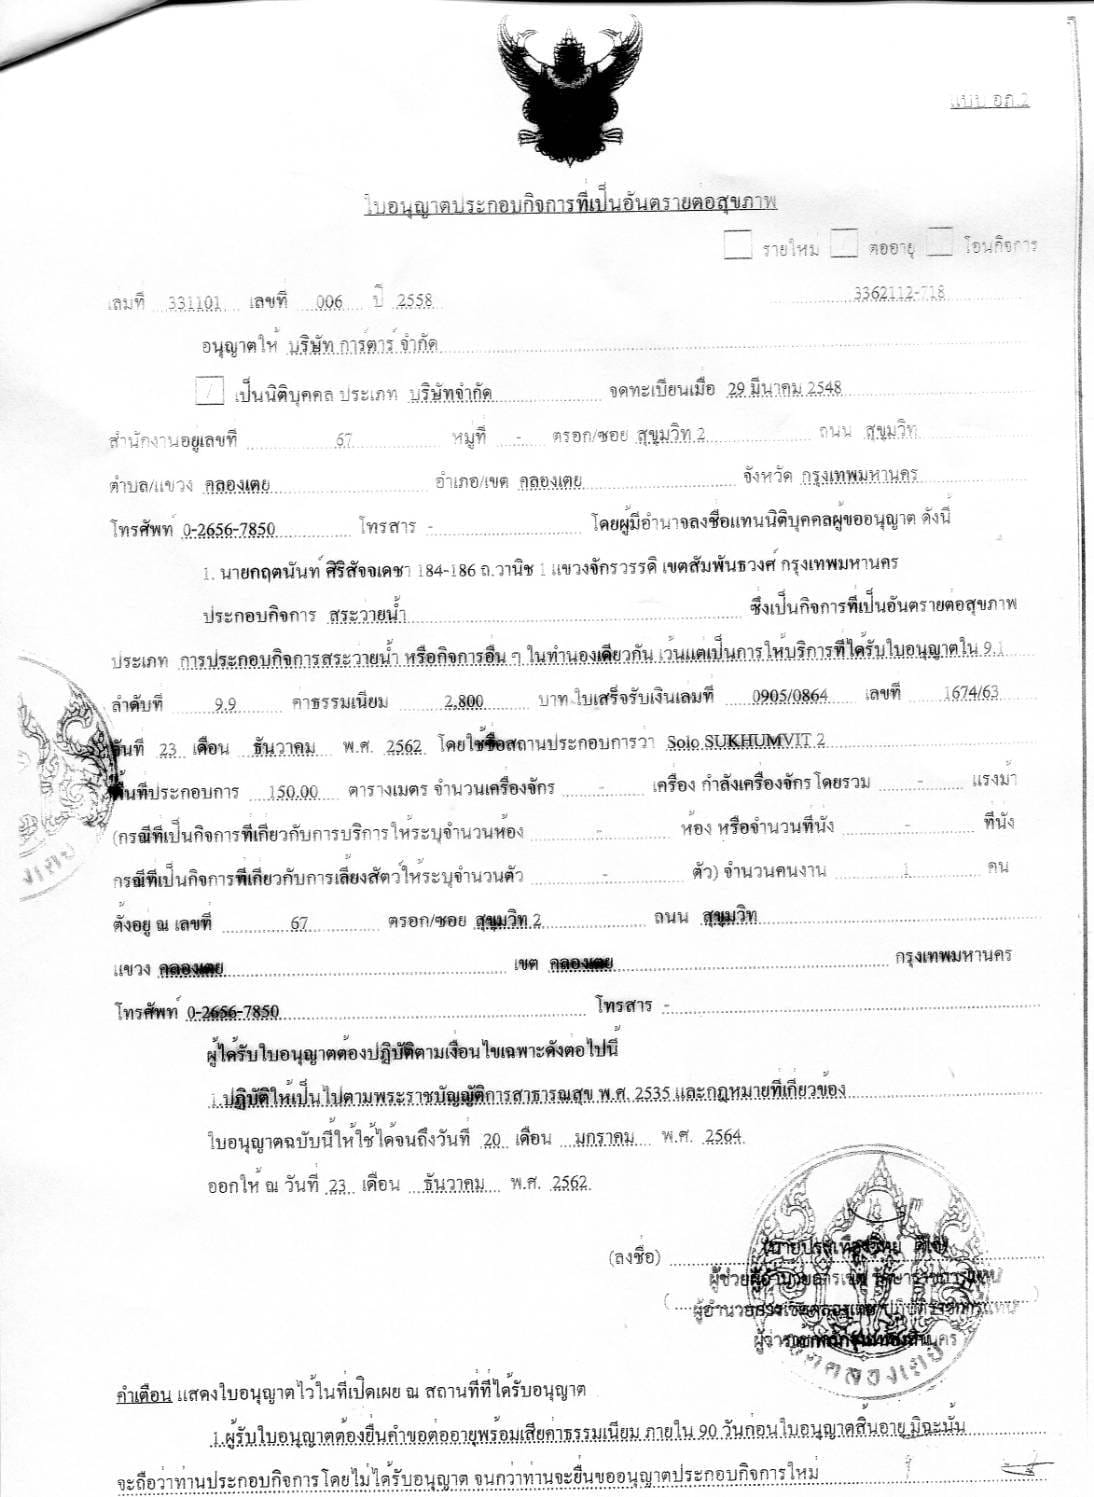 แบบ อภ.2
ใบอนุญาตประกอบกิจการที่เป็นอันตรายต่อสุขภาพ
รายใหม่ / ต่ออายุ โอนกิจการ
เล่มที่ 331101 เลขที่ 006 ปี 2558 3362112-718
อนุญาตให้ บริษัท การ์ตาร์ จำกัด
/ เป็นนิติบุคคล ประเภท บริษัทจำกัด จดทะเบียนเมื่อ 29 มีนาคม 2548
สำนักงานอยู่เลขที่ 67 หมู่ที่ - ตรอก/ซอย สุขุมวิท 2 ถนน สุขุมวิท
ตำบล/แขวง คลองเตย อำเภอ/เขต คลองเตย จังหวัด กรุงเทพมหานคร
โทรศัพท์ 0-2656-7850 โทรสาร - โดยผู้มีอำนาจลงชื่อแทนนิติบุคคลผู้ขออนุญาต ดังนี้
1. นายกฤตนันท์ ศิริสัจจเดชา 184-186 ถ.วานิช 1 แขวงจักรวรรดิ เขตสัมพันธวงศ์ กรุงเทพมหานคร
ประกอบกิจการ สระว่ายน้ำ ซึ่งเป็นกิจการที่เป็นอันตรายต่อสุขภาพ
ประเภท การประกอบกิจการสระว่ายน้ำ หรือกิจการอื่น ๆ ในทำนองเดียวกัน เว้นแต่เป็นการให้บริการที่ได้รับใบอนุญาตใน 9.1
ลำดับที่ 9.9 ค่าธรรมเนียม 2,800 บาท ใบเสร็จรับเงินเล่มที่ 0905/0864 เลขที่ 1674/63
วันที่ 23 เดือน ธันวาคม พ.ศ. 2562 โดยใช้ชื่อสถานประกอบการว่า Solo SUKHUMVIT 2
พื้นที่ประกอบการ 150.00 ตารางเมตร จำนวนเครื่องจักร - เครื่อง กำลังเครื่องจักรโดยรวม - แรงม้า
(กรณีที่เป็นกิจการที่เกี่ยวกับการบริการให้ระบุจำนวนห้อง - ห้อง หรือจำนวนที่นั่ง - ที่นั่ง
กรณีที่เป็นกิจการที่เกี่ยวกับการเลี้ยงสัตว์ให้ระบุจำนวนตัว - ตัว) จำนวนคนงาน 1 คน
ตั้งอยู่ ณ เลขที่ 67 ตรอก/ซอย สุขุมวิท 2 ถนน สุขุมวิท
แขวง คลองเตย เขต คลองเตย กรุงเทพมหานคร
โทรศัพท์ 0-2656-7850 โทรสาร -
ผู้ได้รับใบอนุญาตต้องปฏิบัติตามเงื่อนไขเฉพาะดังต่อไปนี้
1.ปฏิบัติให้เป็นไปตามพระราชบัญญัติการสาธารณสุข พ.ศ. 2535 และกฎหมายที่เกี่ยวข้อง
ใบอนุญาตฉบับนี้ให้ใช้ได้จนถึงวันที่ 20 เดือน มกราคม พ.ศ. 2564
ออกให้ ณ วันที่ 23 เดือน ธันวาคม พ.ศ. 2562
(ลงชื่อ)
ผู้ช่วยผู้อำนวยการเขต รักษาราชการแทน
ผู้อำนวยการเขตคลองเตย ปฏิบัติราชการแทน
เขตคลองเตย
คำเตือน แสดงใบอนุญาตไว้ในที่เปิดเผย ณ สถานที่ที่ได้รับอนุญาต
1.ผู้รับใบอนุญาตต้องยื่นคำขอต่ออายุพร้อมเสียค่าธรรมเนียม ภายใน 90 วันก่อนใบอนุญาตสิ้นอายุ มิฉะนั้น
จะถือว่าท่านประกอบกิจการโดยไม่ได้รับอนุญาต จนกว่าท่านจะยื่นขออนุญาตประกอบกิจการใหม่